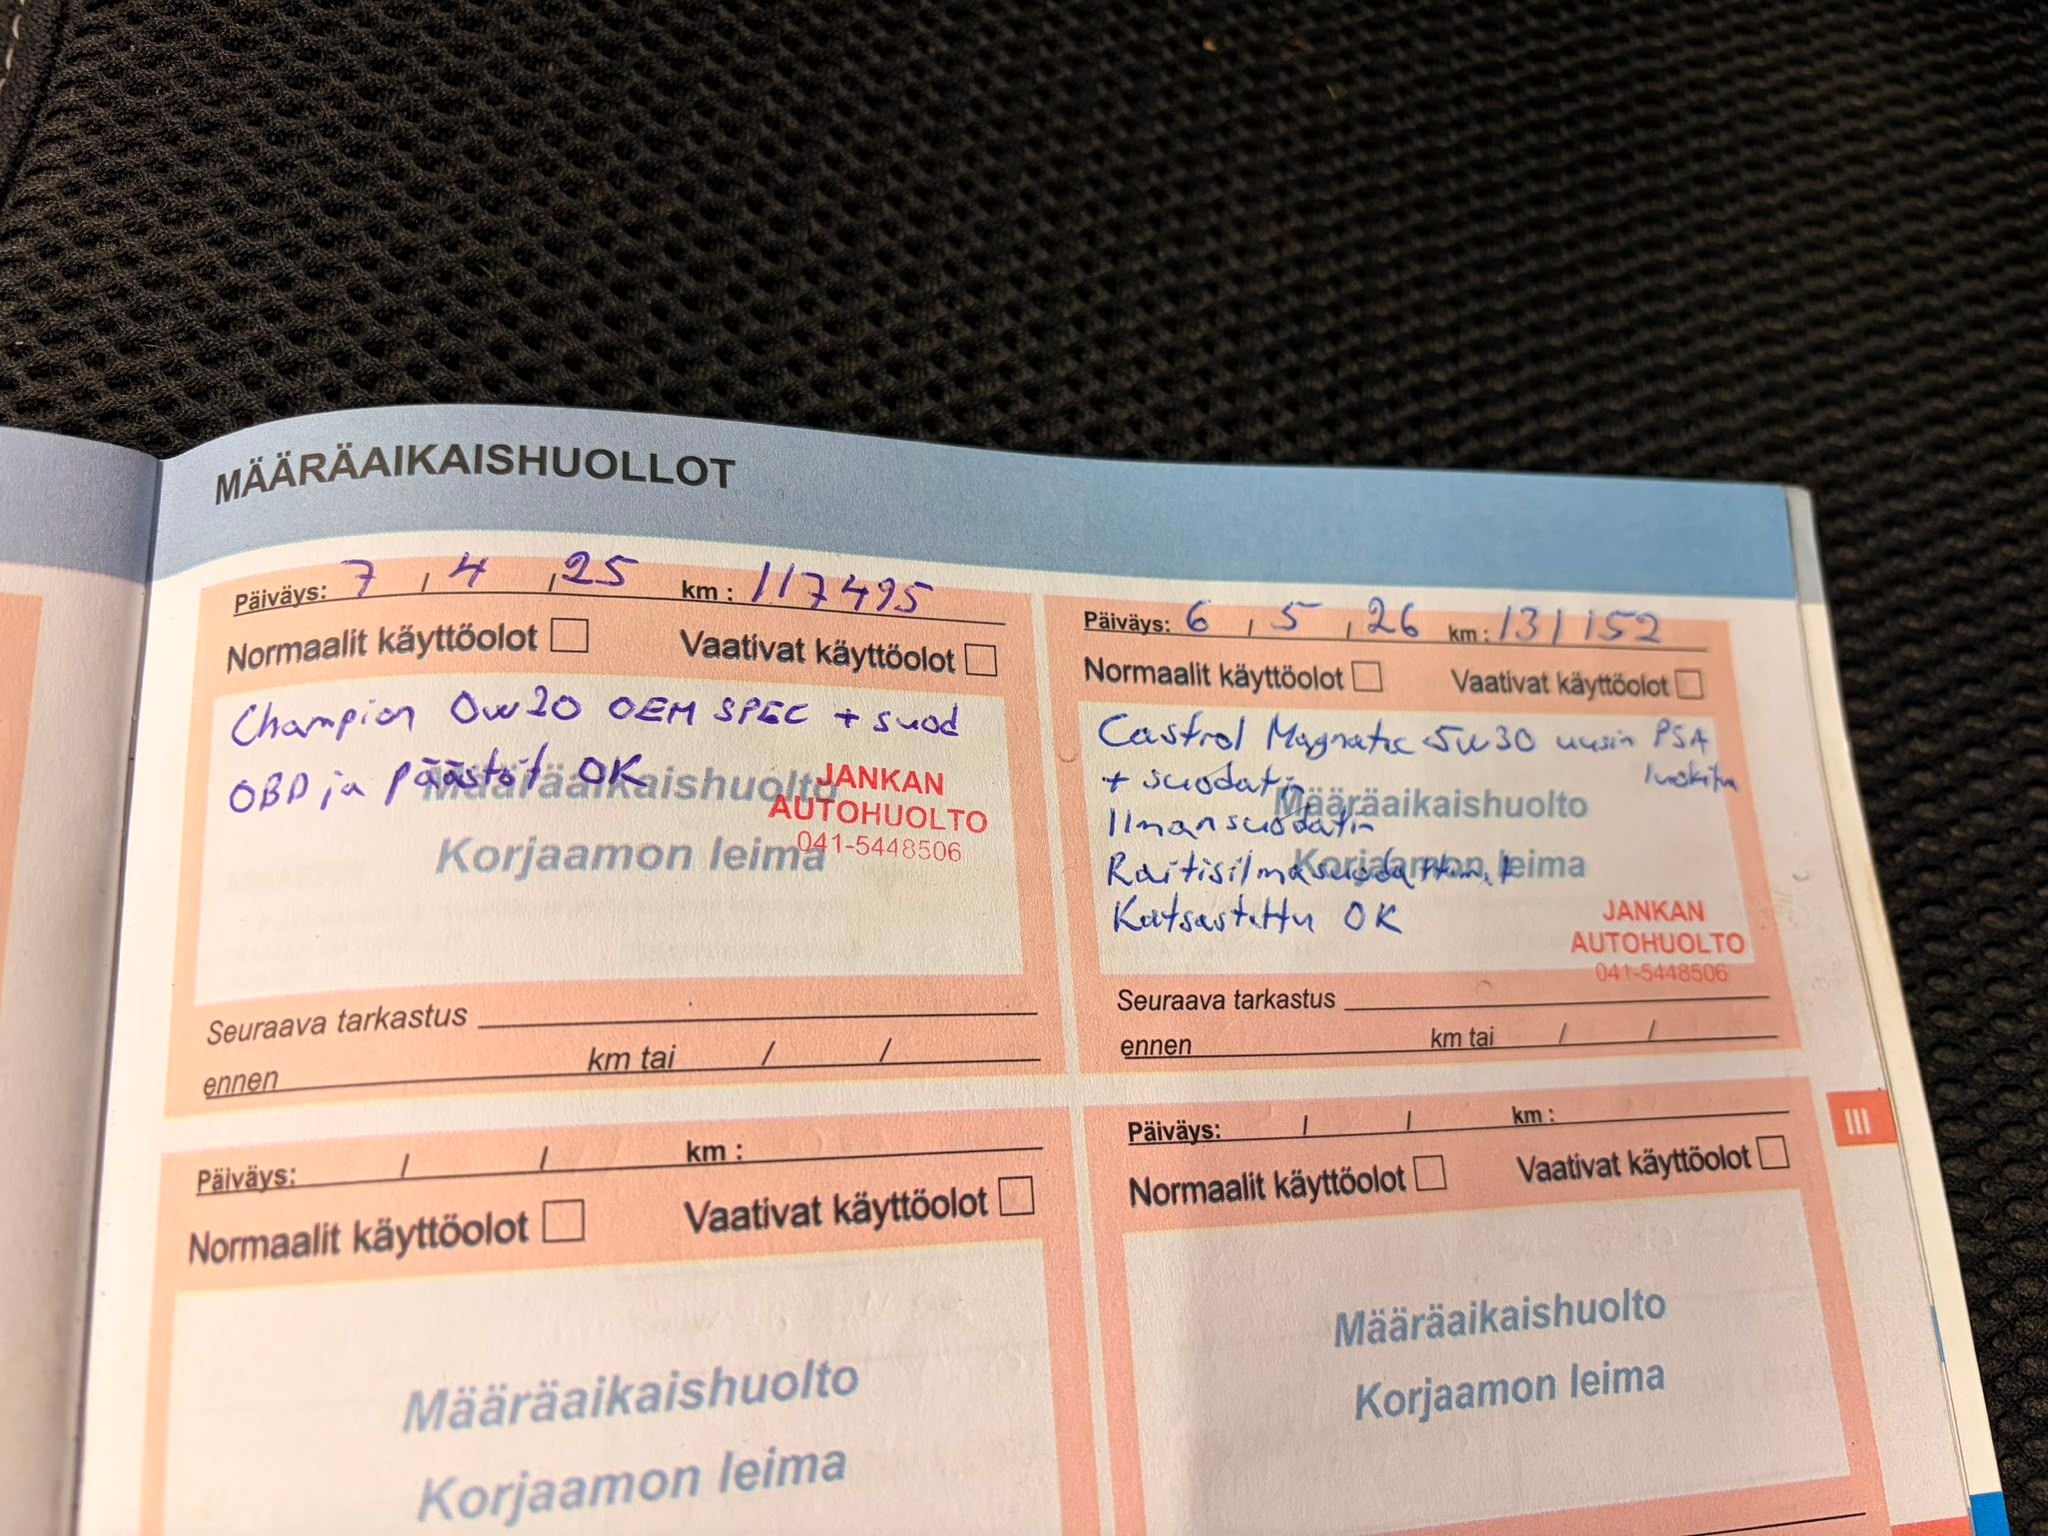 MÄÄRÄAIKAISHUOLLOT
Päiväys: 7 / 4 / 25 km : 117495
Normaalit käyttöolot Vaativat käyttöolot
Champion 0W20 OEM SPEC + suod
OBD ja päästöt OK
Määräaikaishuolto
Korjaamon leima
JANKAN
AUTOHUOLTO
041-5448506
Seuraava tarkastus
ennen km tai / /
Päiväys: 6 / 5 / 26 km : 131152
Normaalit käyttöolot Vaativat käyttöolot
Castrol Magnatec 5W30 uusin PSA
luokitus
+ suodatin
Ilmansuodatin
Raitisilmasuodattimet
Katsastettu OK
Määräaikaishuolto
Korjaamon leima
JANKAN
AUTOHUOLTO
041-5448506
Seuraava tarkastus
ennen km tai / /
Päiväys: / / km :
Normaalit käyttöolot Vaativat käyttöolot
Määräaikaishuolto
Korjaamon leima
Päiväys: / / km :
Normaalit käyttöolot Vaativat käyttöolot
Määräaikaishuolto
Korjaamon leima
III